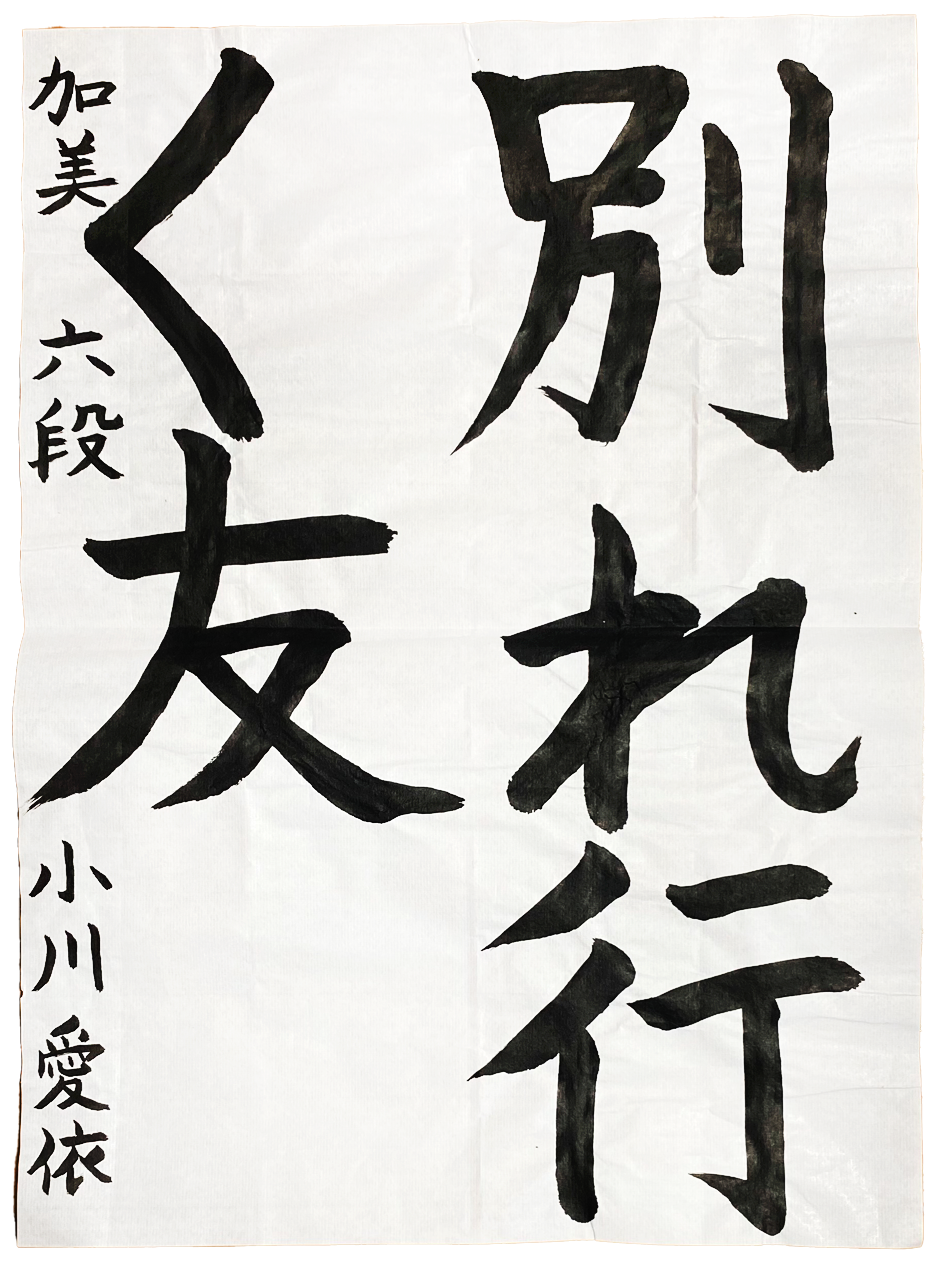 別れ行
く友
加美 六段 小川愛依